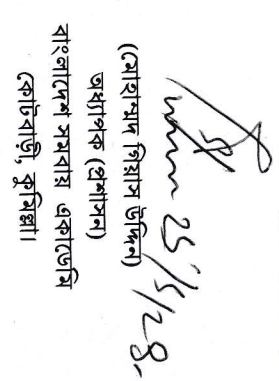 ২৫/৫/২৪
(মোহাম্মদ গিয়াস উদ্দিন)
অধ্যাপক (প্রশাসন)
বাংলাদেশ সমবায় একাডেমি
কোটবাড়ী, কুমিল্লা।